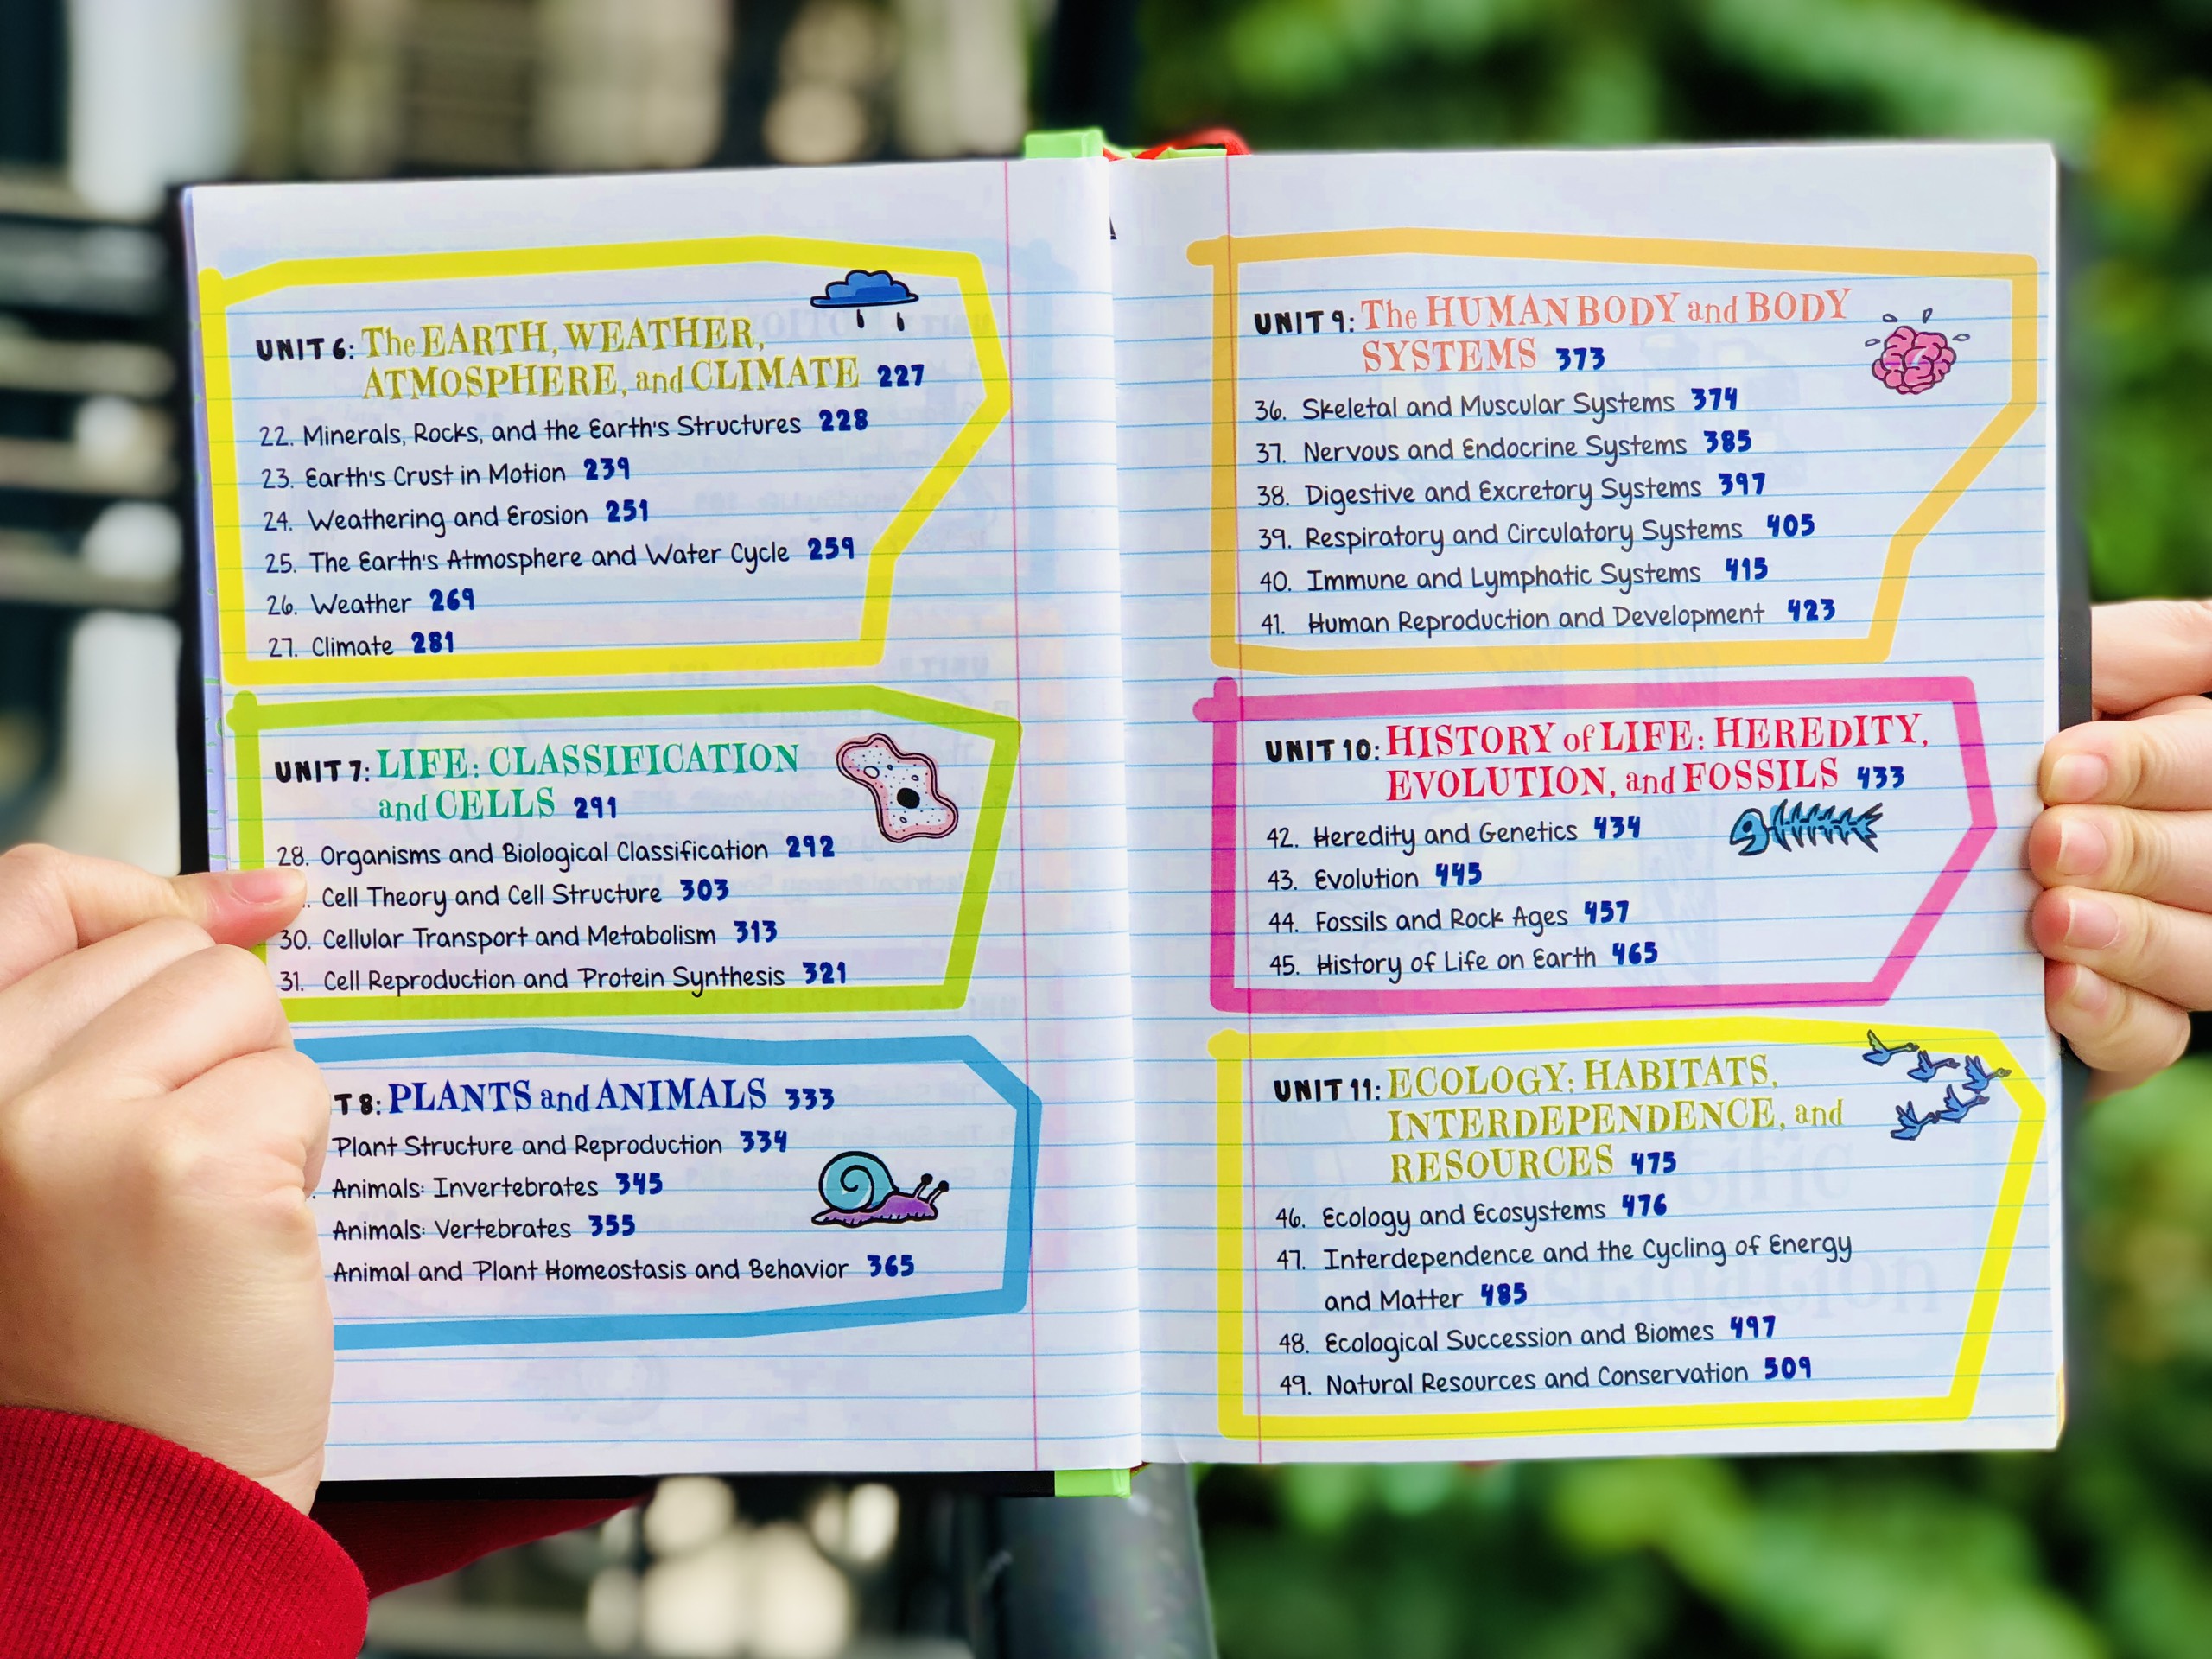 UNIT 6: The EARTH, WEATHER,
ATMOSPHERE, and CLIMATE 227
22. Minerals, Rocks, and the Earth's Structures 228
23. Earth's Crust in Motion 239
24. Weathering and Erosion 251
25. The Earth's Atmosphere and Water Cycle 259
26. Weather 269
27. Climate 281
UNIT 7: LIFE: CLASSIFICATION
and CELLS 291
28. Organisms and Biological Classification 292
. Cell Theory and Cell Structure 303
30. Cellular Transport and Metabolism 313
31. Cell Reproduction and Protein Synthesis 321
T 8: PLANTS and ANIMALS 333
Plant Structure and Reproduction 334
. Animals: Invertebrates 345
Animals: Vertebrates 355
Animal and Plant Homeostasis and Behavior 365
UNIT 9: The HUMAN BODY and BODY
SYSTEMS 373
36. Skeletal and Muscular Systems 374
37. Nervous and Endocrine Systems 385
38. Digestive and Excretory Systems 397
39. Respiratory and Circulatory Systems 405
40. Immune and Lymphatic Systems 415
41. Human Reproduction and Development 423
UNIT 10: HISTORY of LIFE: HEREDITY,
EVOLUTION, and FOSSILS 433
42. Heredity and Genetics 434
43. Evolution 445
44. Fossils and Rock Ages 457
45. History of Life on Earth 465
UNIT 11: ECOLOGY: HABITATS,
INTERDEPENDENCE, and
RESOURCES 475
46. Ecology and Ecosystems 476
47. Interdependence and the Cycling of Energy
and Matter 485
48. Ecological Succession and Biomes 497
49. Natural Resources and Conservation 509